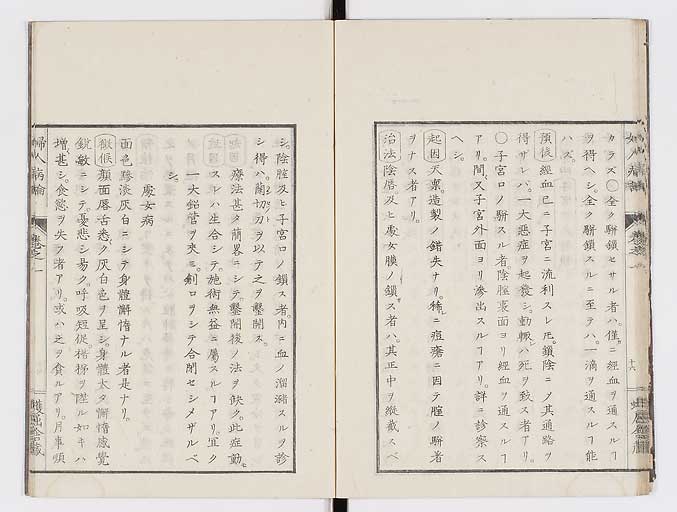 カラズ〇全ク駢鎖セサル者ハ。僅ニ經血ヲ通スルヿ
ヲ得ヘシ。全ク駢鎖スルニ至テハ。一滴ヲ通スルヿ能
ハズ。
預後 經血巳ニ子宮ニ流利スレ𪜈。鎖陰ニノ其通路ヲ
得ザレバ。一大惡症ヲ起發シ。動輙ハ死ヲ致ス者アリ。
〇子宮口ノ駢スル者。陰腟裏面ヨリ經血ヲ通スルヿ
アリ。間又子宮外面ヨリ滲出スルヿアリ。詳ニ診察ス
ヘシ。
起因 天稟造製ノ錯失ナリ。稀ニ痘瘡ニ因テ腟ノ駢著
ヲナス者アリ。
治法 陰唇及ヒ處女膜ノ鎖ス者ハ。其正中ヲ縱截スベ
十六
婦人病論
卷之一
シ。陰腟及ヒ子宮口ノ鎖ス者。内ニ血ノ溜瀦スルヲ診
シ得ハ。蘭切刀ヲ以テ之ヲ鑿開ス。
療法甚タ簡畧ニシテ。鑿開後ノ法ヲ缺ク。此症動モ
スレハ生合シテ。施術無益ニ屬スルヿアリ。宜ク
一大鋁管ヲ夾ミ。創口ヲシテ合閉セシメザルベ
シ。
處女病
面色黲淡灰白ニシテ身體懈惰ナル者是ナリ。
徴候 顏面唇舌悉ク灰白色ヲ呈シ。身體太タ懈惰感覺
鋭敏ニシテ。憂悲シ易ク。呼吸短促。梯桥ヲ陞ル如キハ
増甚シ。食慾ヲ失フ者アリ。或ハ之ヲ貪ルアリ。月事順